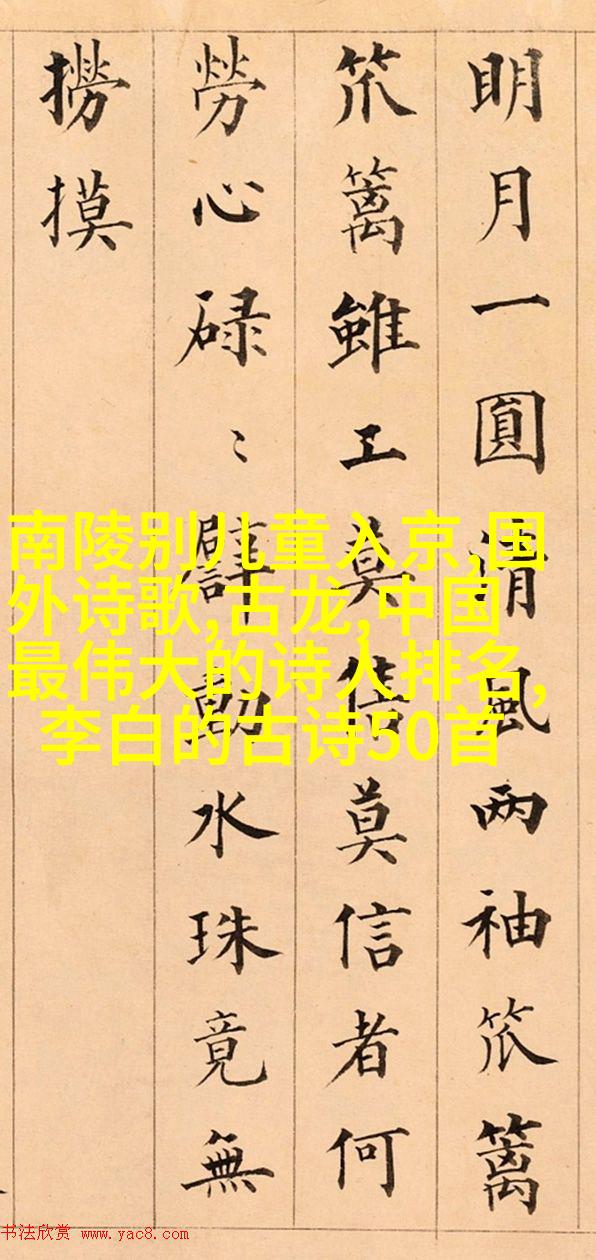 明月一圓清風两袖笊篱
笊篱雖工莫售莫信者何
勞心碌〻動水珠竟無
撈摸
南陵别儿童入京,国
外诗歌,古龙,中国
最伟大的诗人排名,
李白的古诗50首
书法欣赏 www.yac8.com